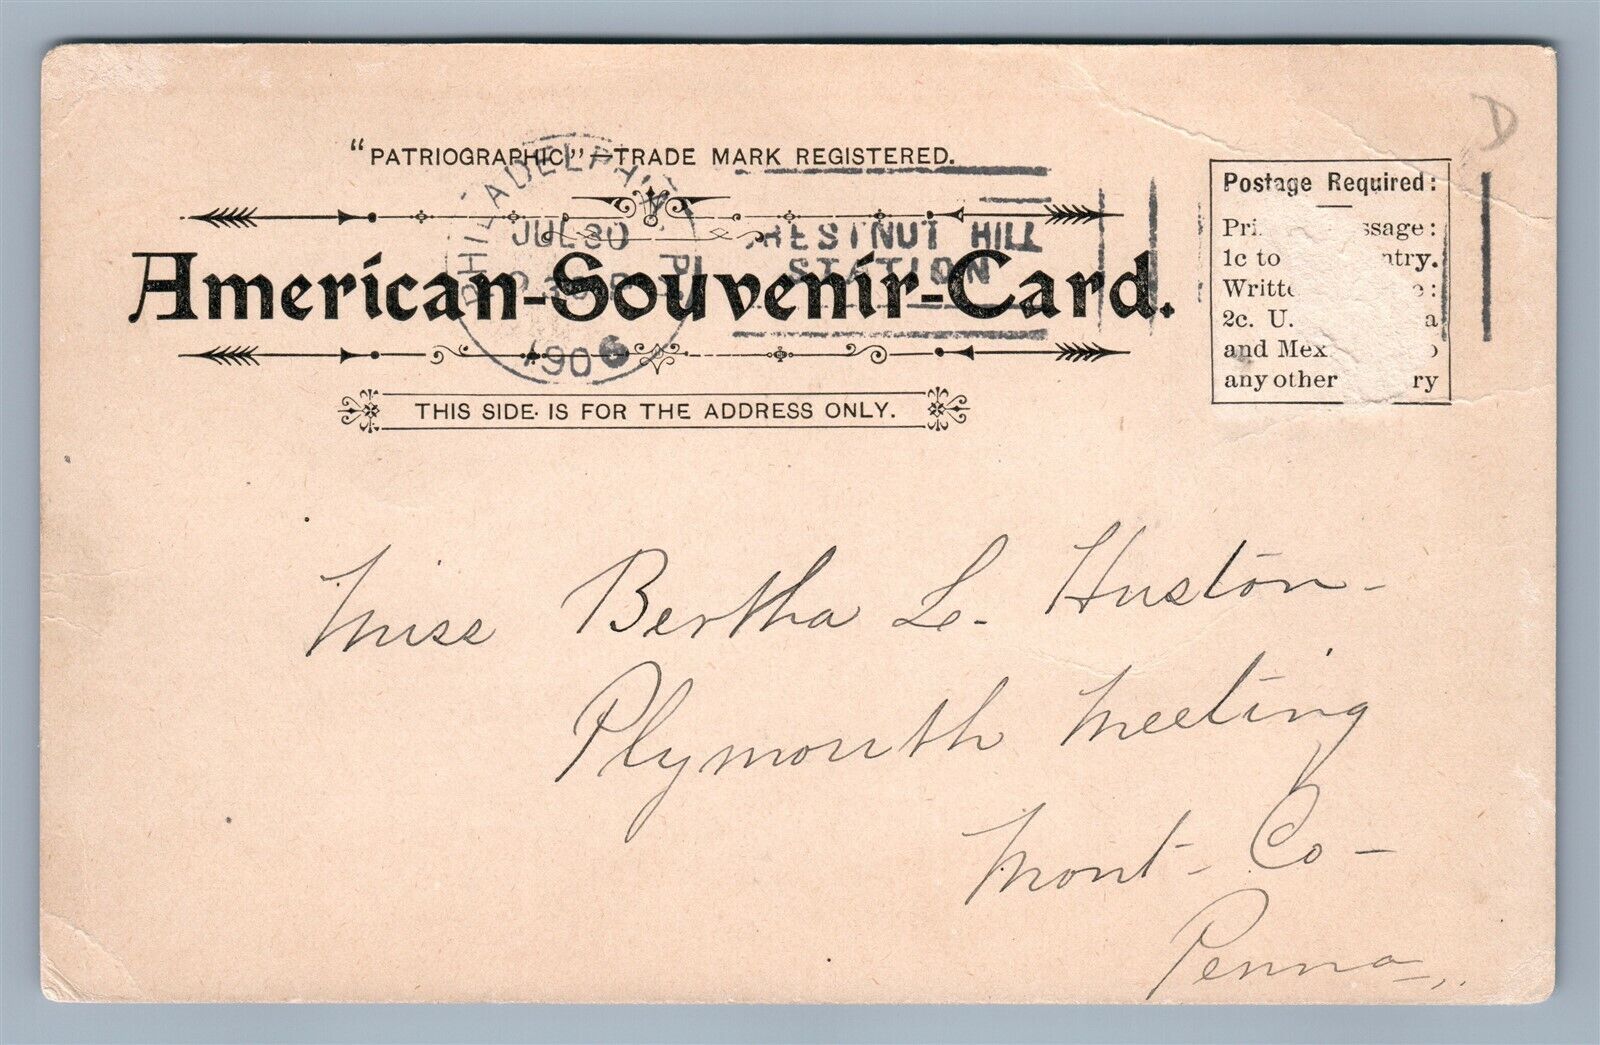 "PATRIOGRAPHIC"—TRADE MARK REGISTERED.
American-Souvenir-Card.
THIS SIDE IS FOR THE ADDRESS ONLY.
PHILADELPHIA, PA.
JUL 30
1906
CHESTNUT HILL
STATION
D
Postage Required:
1c to
2c. U.
and Mex
any other
Miss Bertha L. Huston-
Plymouth Meeting
Mont- Co-
Penna